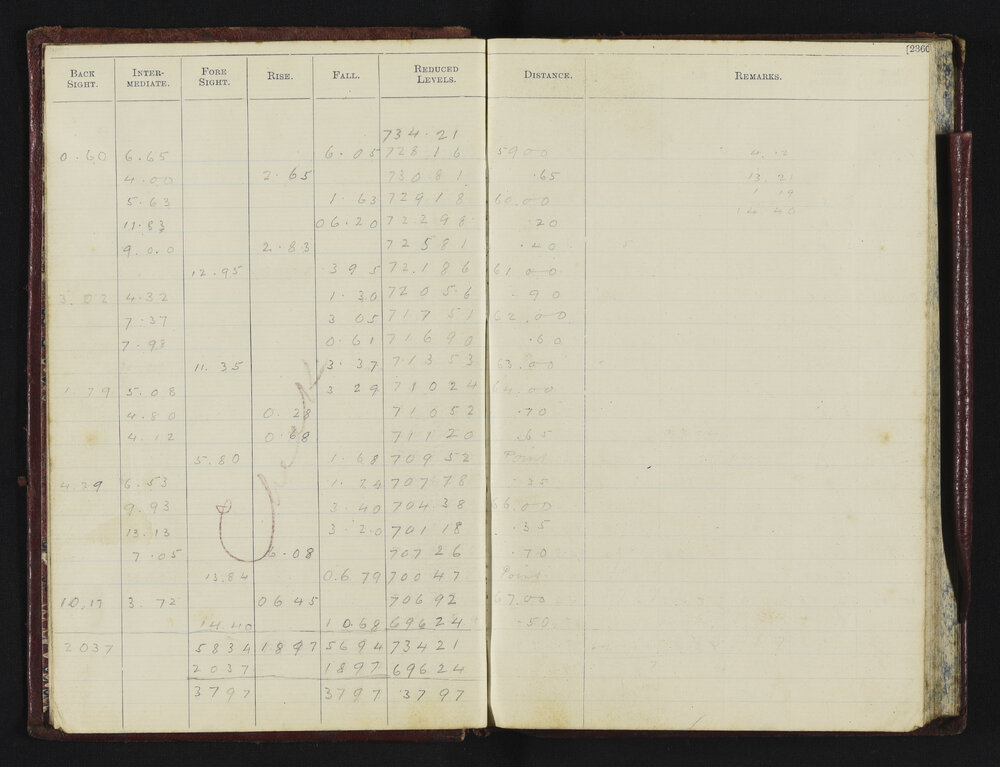 [2360
BACK SIGHT. INTER-MEDIATE. FORE SIGHT. RISE. FALL. REDUCED LEVELS. DISTANCE. REMARKS.
734.21
0.60 6.65 6.05 728 16 5900 4.12
4.00 2.65 730 81 .65 13.21
5.63 1.63 729 18 60.00 1 19
11.83 06.20 722 98 .20 14 40
9.00 2.83 725 81 .40
12.95 3 95 72.1 86 61 00
3.02 4.32 1.30 720 56 .90
7.37 3 05 717 51 62.00
7.98 0.61 716 90 .60
11.35 3.37 713 53 63.00
1.79 5.08 3 29 710 24 64.00
4.80 0.28 710 52 .70
4.12 0.68 711 20 .65
5.80 1.68 709 52 Point
4.29 6.53 1.74 707 78 .35
9.93 3.40 704 38 66.00
13.13 3 20 701 18 .35
7.05 6.08 707 26 .70
13.84 0.6 79 700 47 Point
10.17 3.72 06 45 706 92 67.00
14.40 10.68 696 24 .50
2037 5834 1897 5694 73421
2037 1897 69624
3797 3797 3797
Check